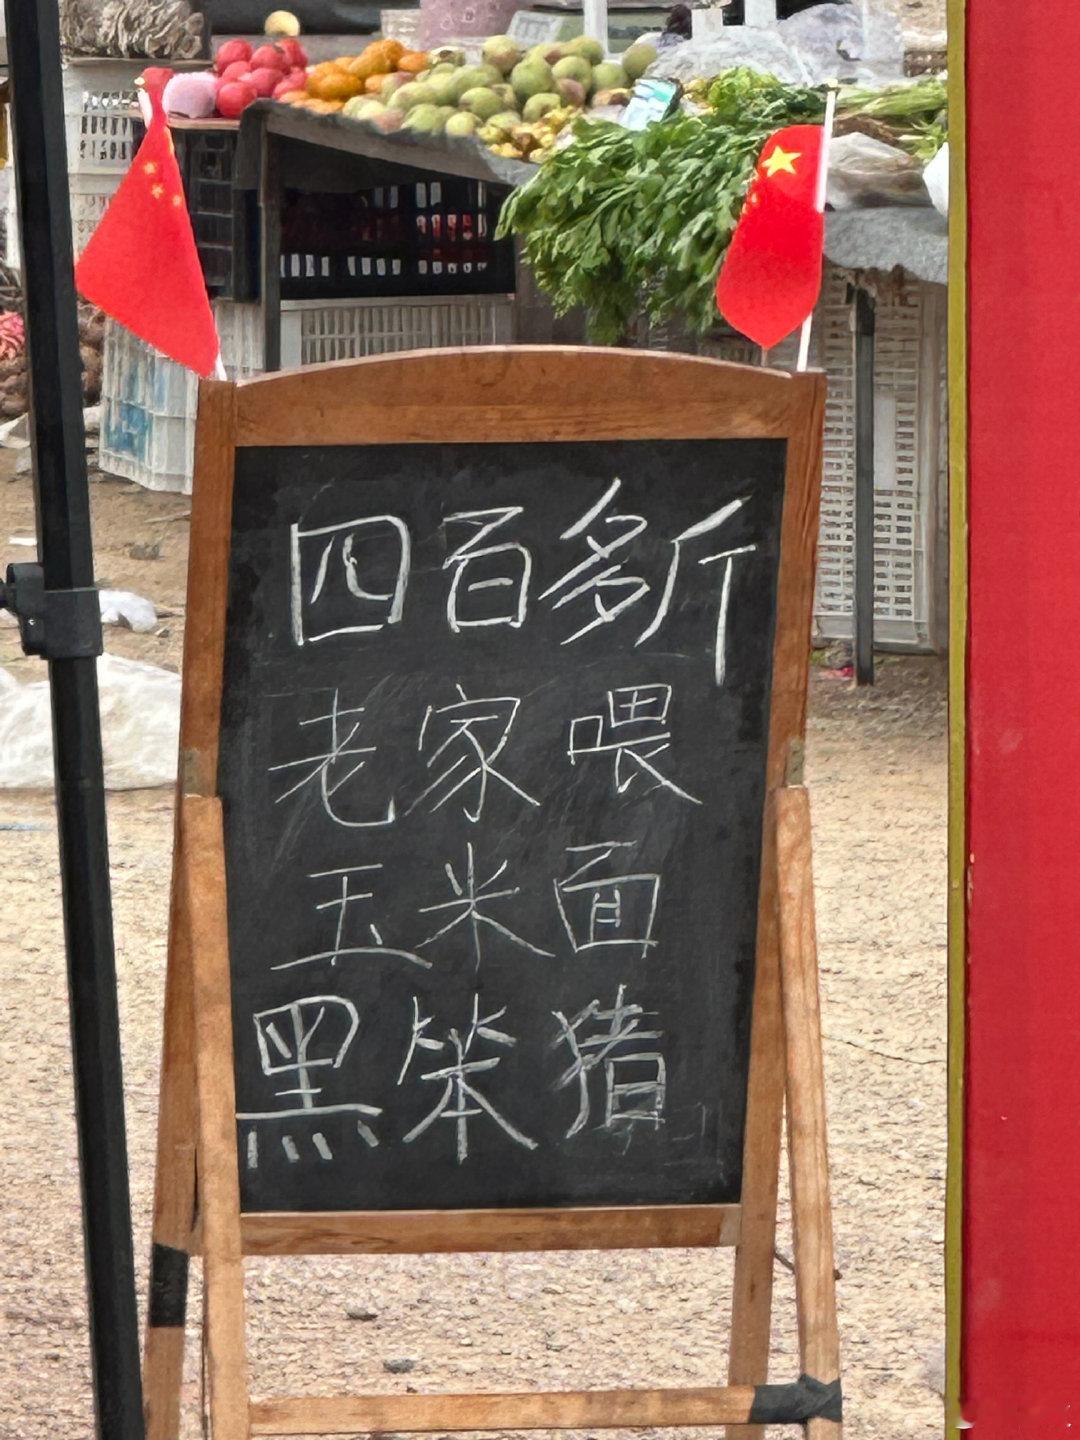 四百多斤
老家喂
玉米面
黑笨猪